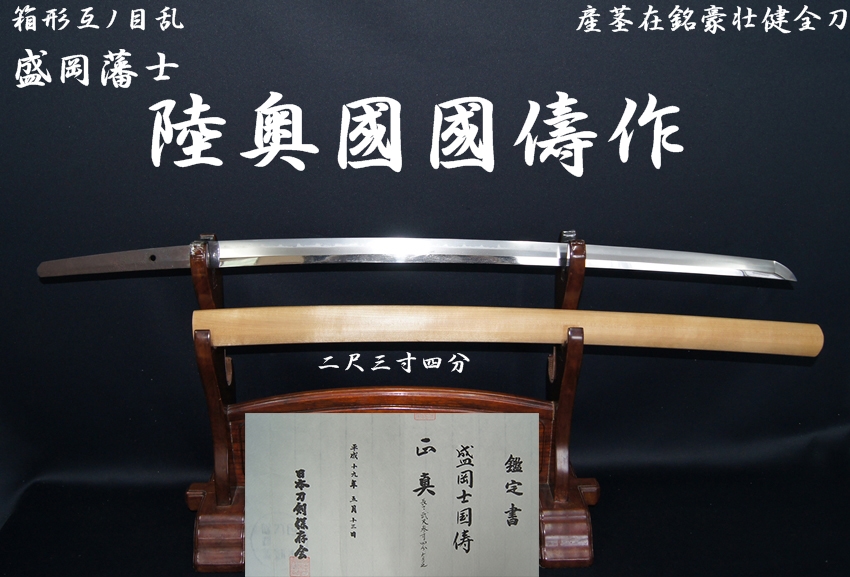 箱形互ノ目乱
産茎在銘豪壮健全刀
盛岡藩士
陸奥國國儔作
二尺三寸四分
鑑定書
盛岡士国儔
正真
平成十九年 五月十三日
日本刀剣保存会